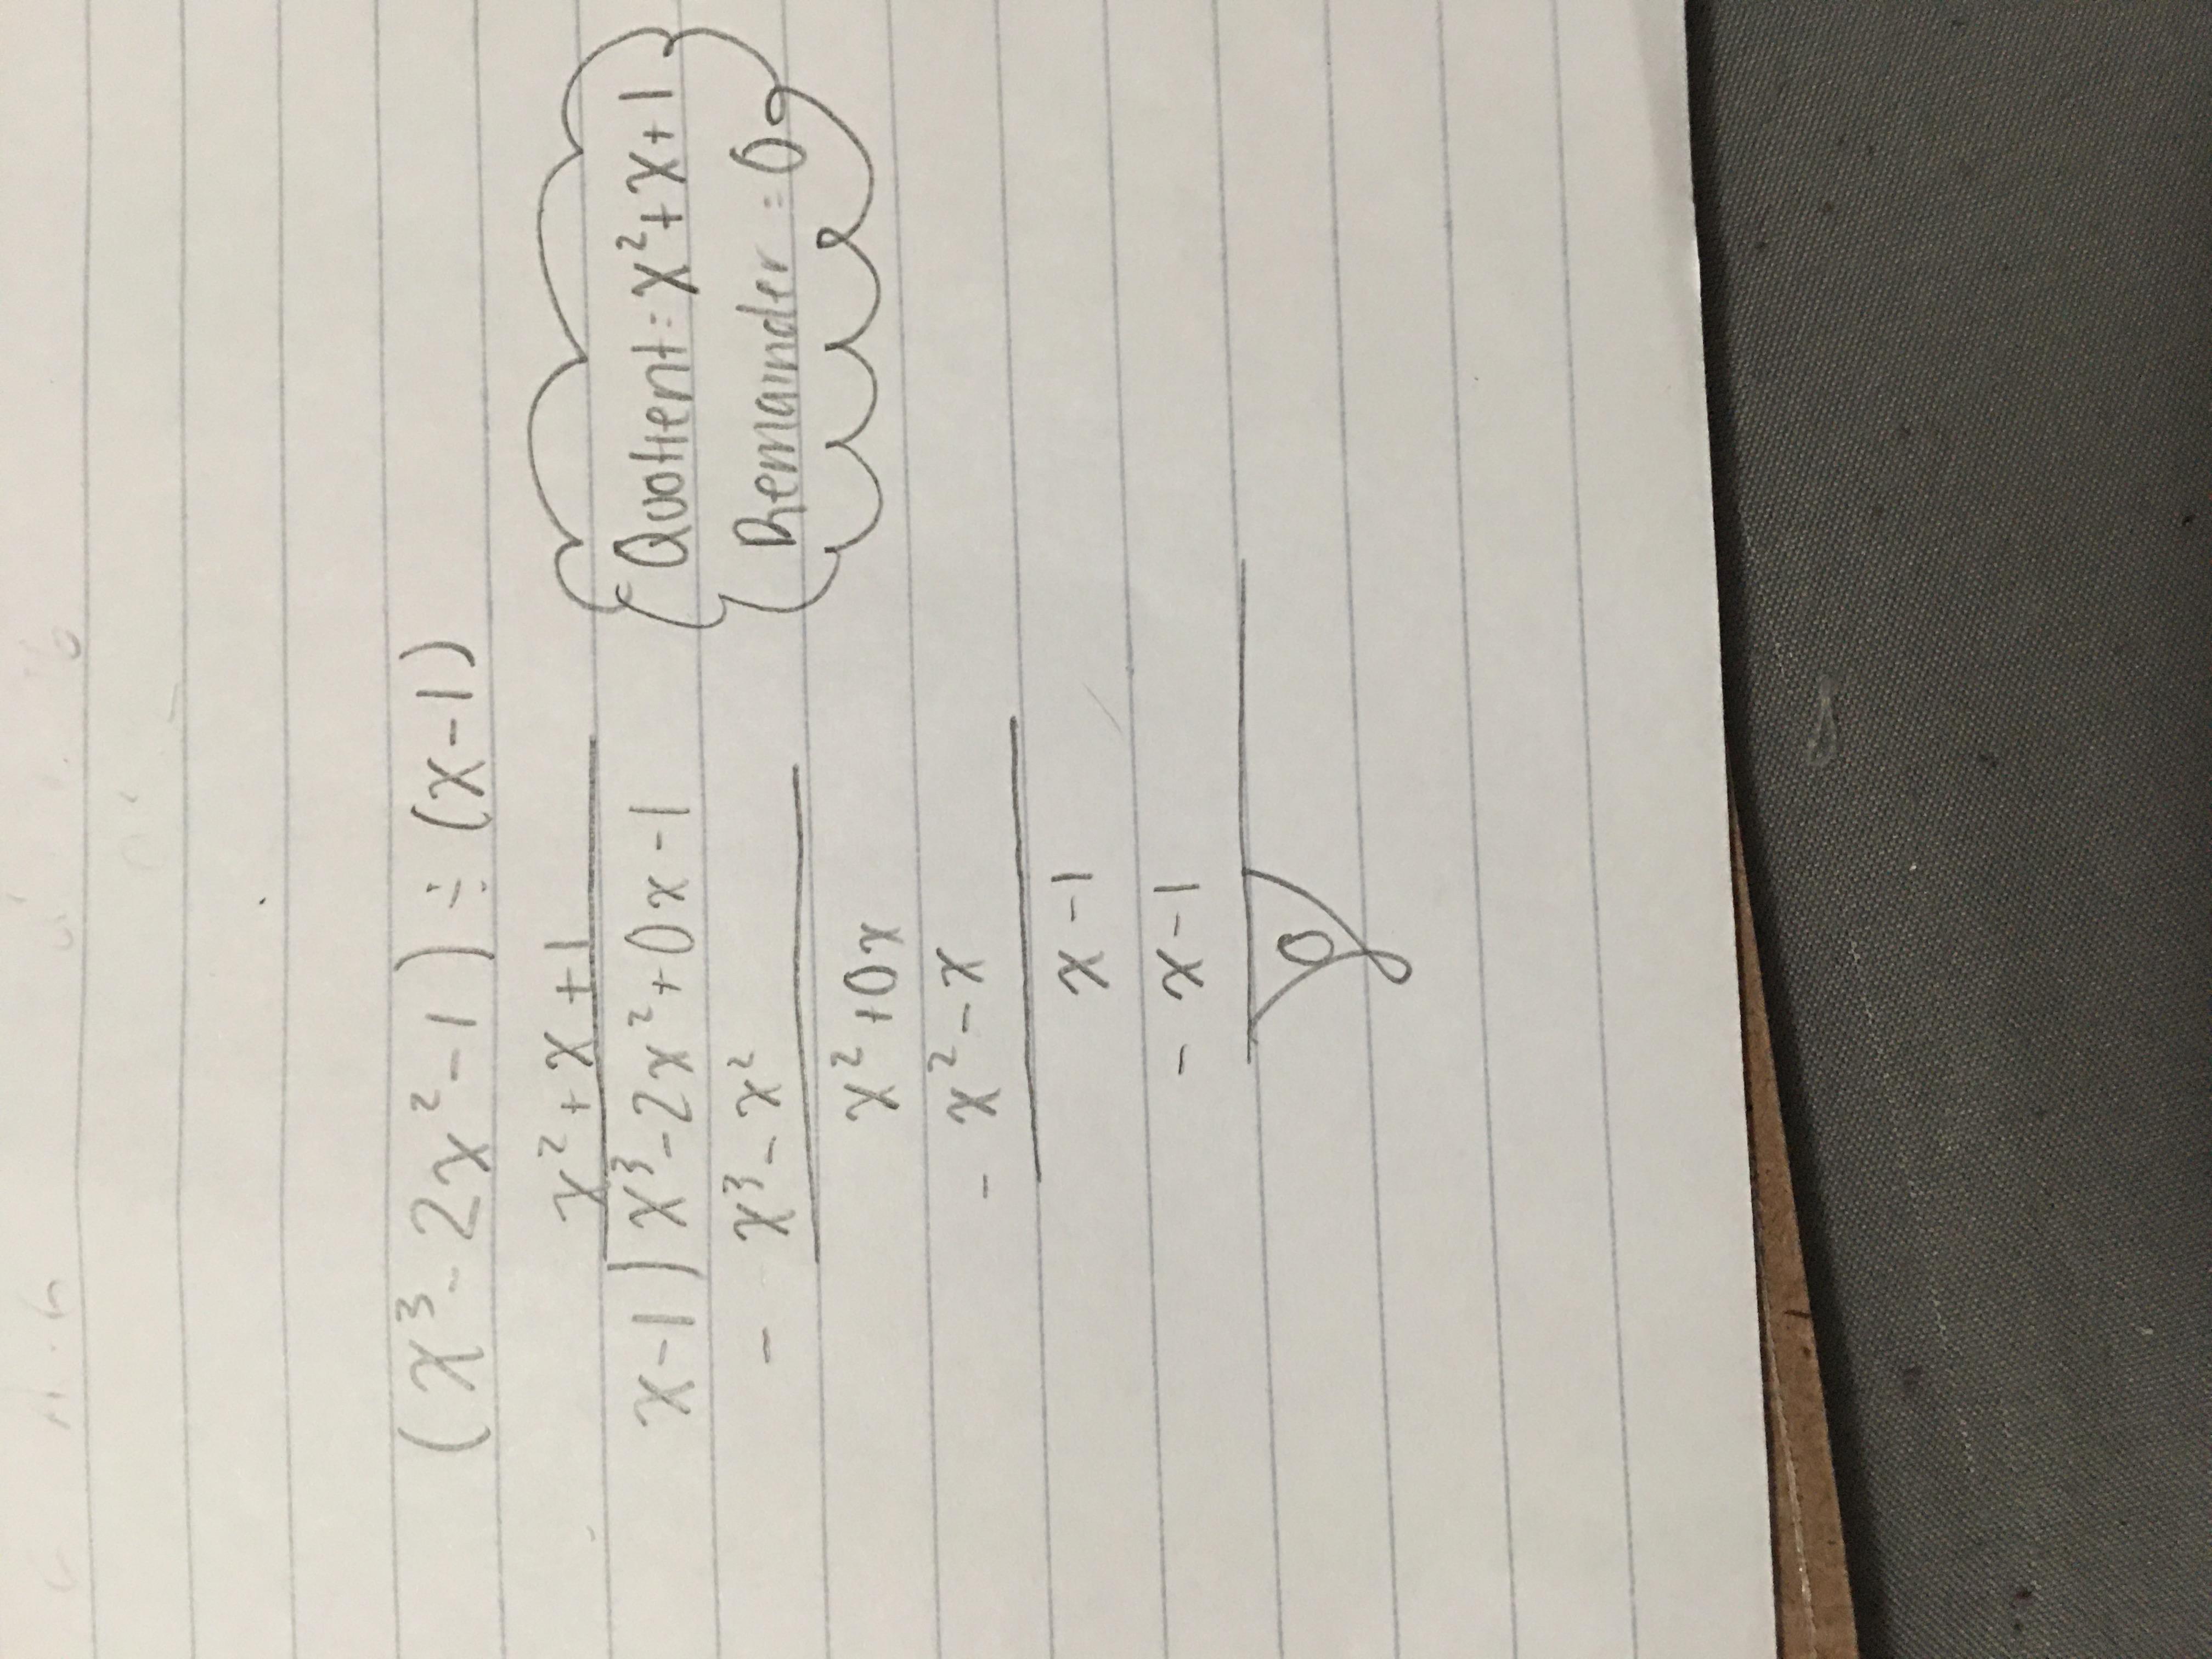 (x³-2x²-1)÷(x-1)
x²+x+1
x-1)x³-2x²+0x-1
- x³-x²
x²+0x
- x²-x
x-1
- x-1
0
Quotient=x²+x+1
Remainder=0